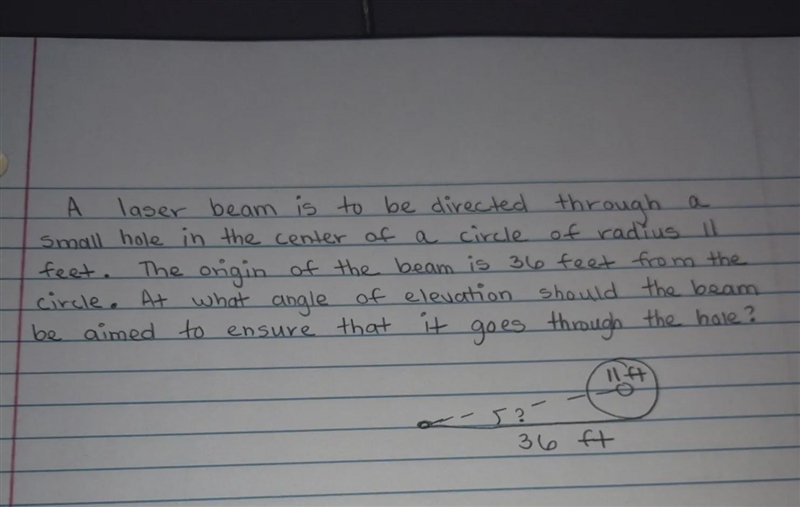 A laser beam is to be directed through a
small hole in the center of a circle of radius 11
feet. The origin of the beam is 36 feet from the
circle. At what angle of elevation should the beam
be aimed to ensure that it goes through the hole?
11 ft
?
36 ft